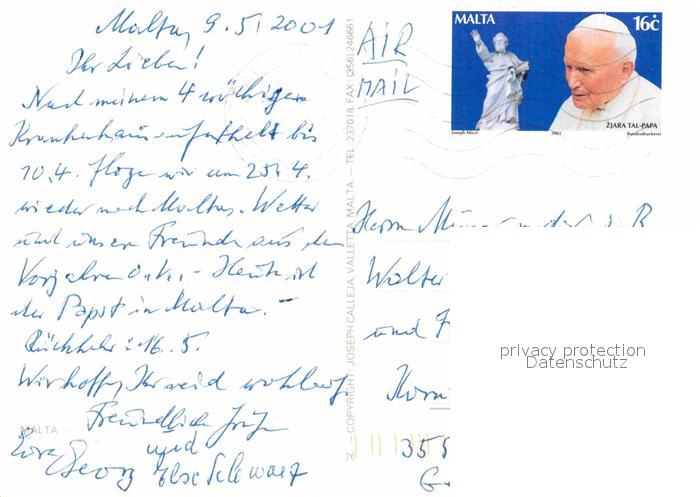 Malta, 9.5.2001
Ihr Lieben!
Nach meinem 4 wöchigen
Krankenhausaufenthalt bis
10.4. flogen wir am 25.4.
wieder nach Malta. Wetter
und unsere Freunde aus den
Vorjahren o.k. - Heute ist
der Papst in Malta. -
Rückkehr: 16.5.
Wir hoffen, Ihr seid wohlauf.
Freundliche Grüße
Eure
Georg und Ilse Schwarz
MALTA
26 - COPYRIGHT JOSEPH CALLEJA, VALLETTA, MALTA. - TEL. 237018, FAX. (356) 246661
AIR
MAIL
MALTA 16c
Joseph Mizzi 2001 ŻJARA TAL-PAPA
Bundesdruckerei
Herrn
Walter
und
355
privacy protection
Datenschutz